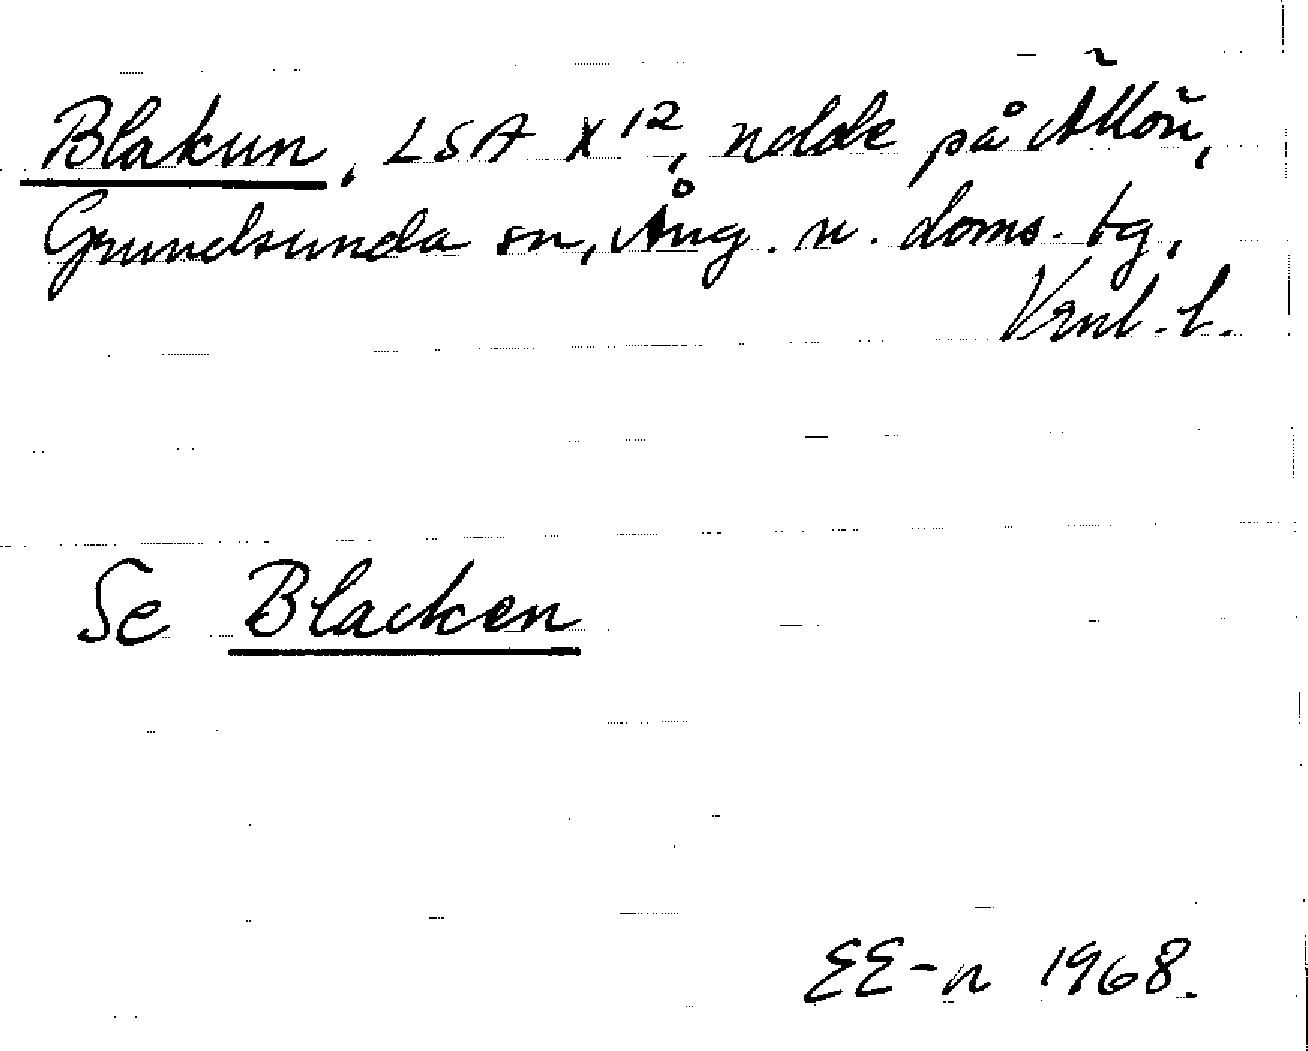 Blakun, LSA X 12, udde på Ällön,
Grundsunda sn, Ång. n. doms. tg,
Vrnl. l.
Se Blacken
EE-n 1968.